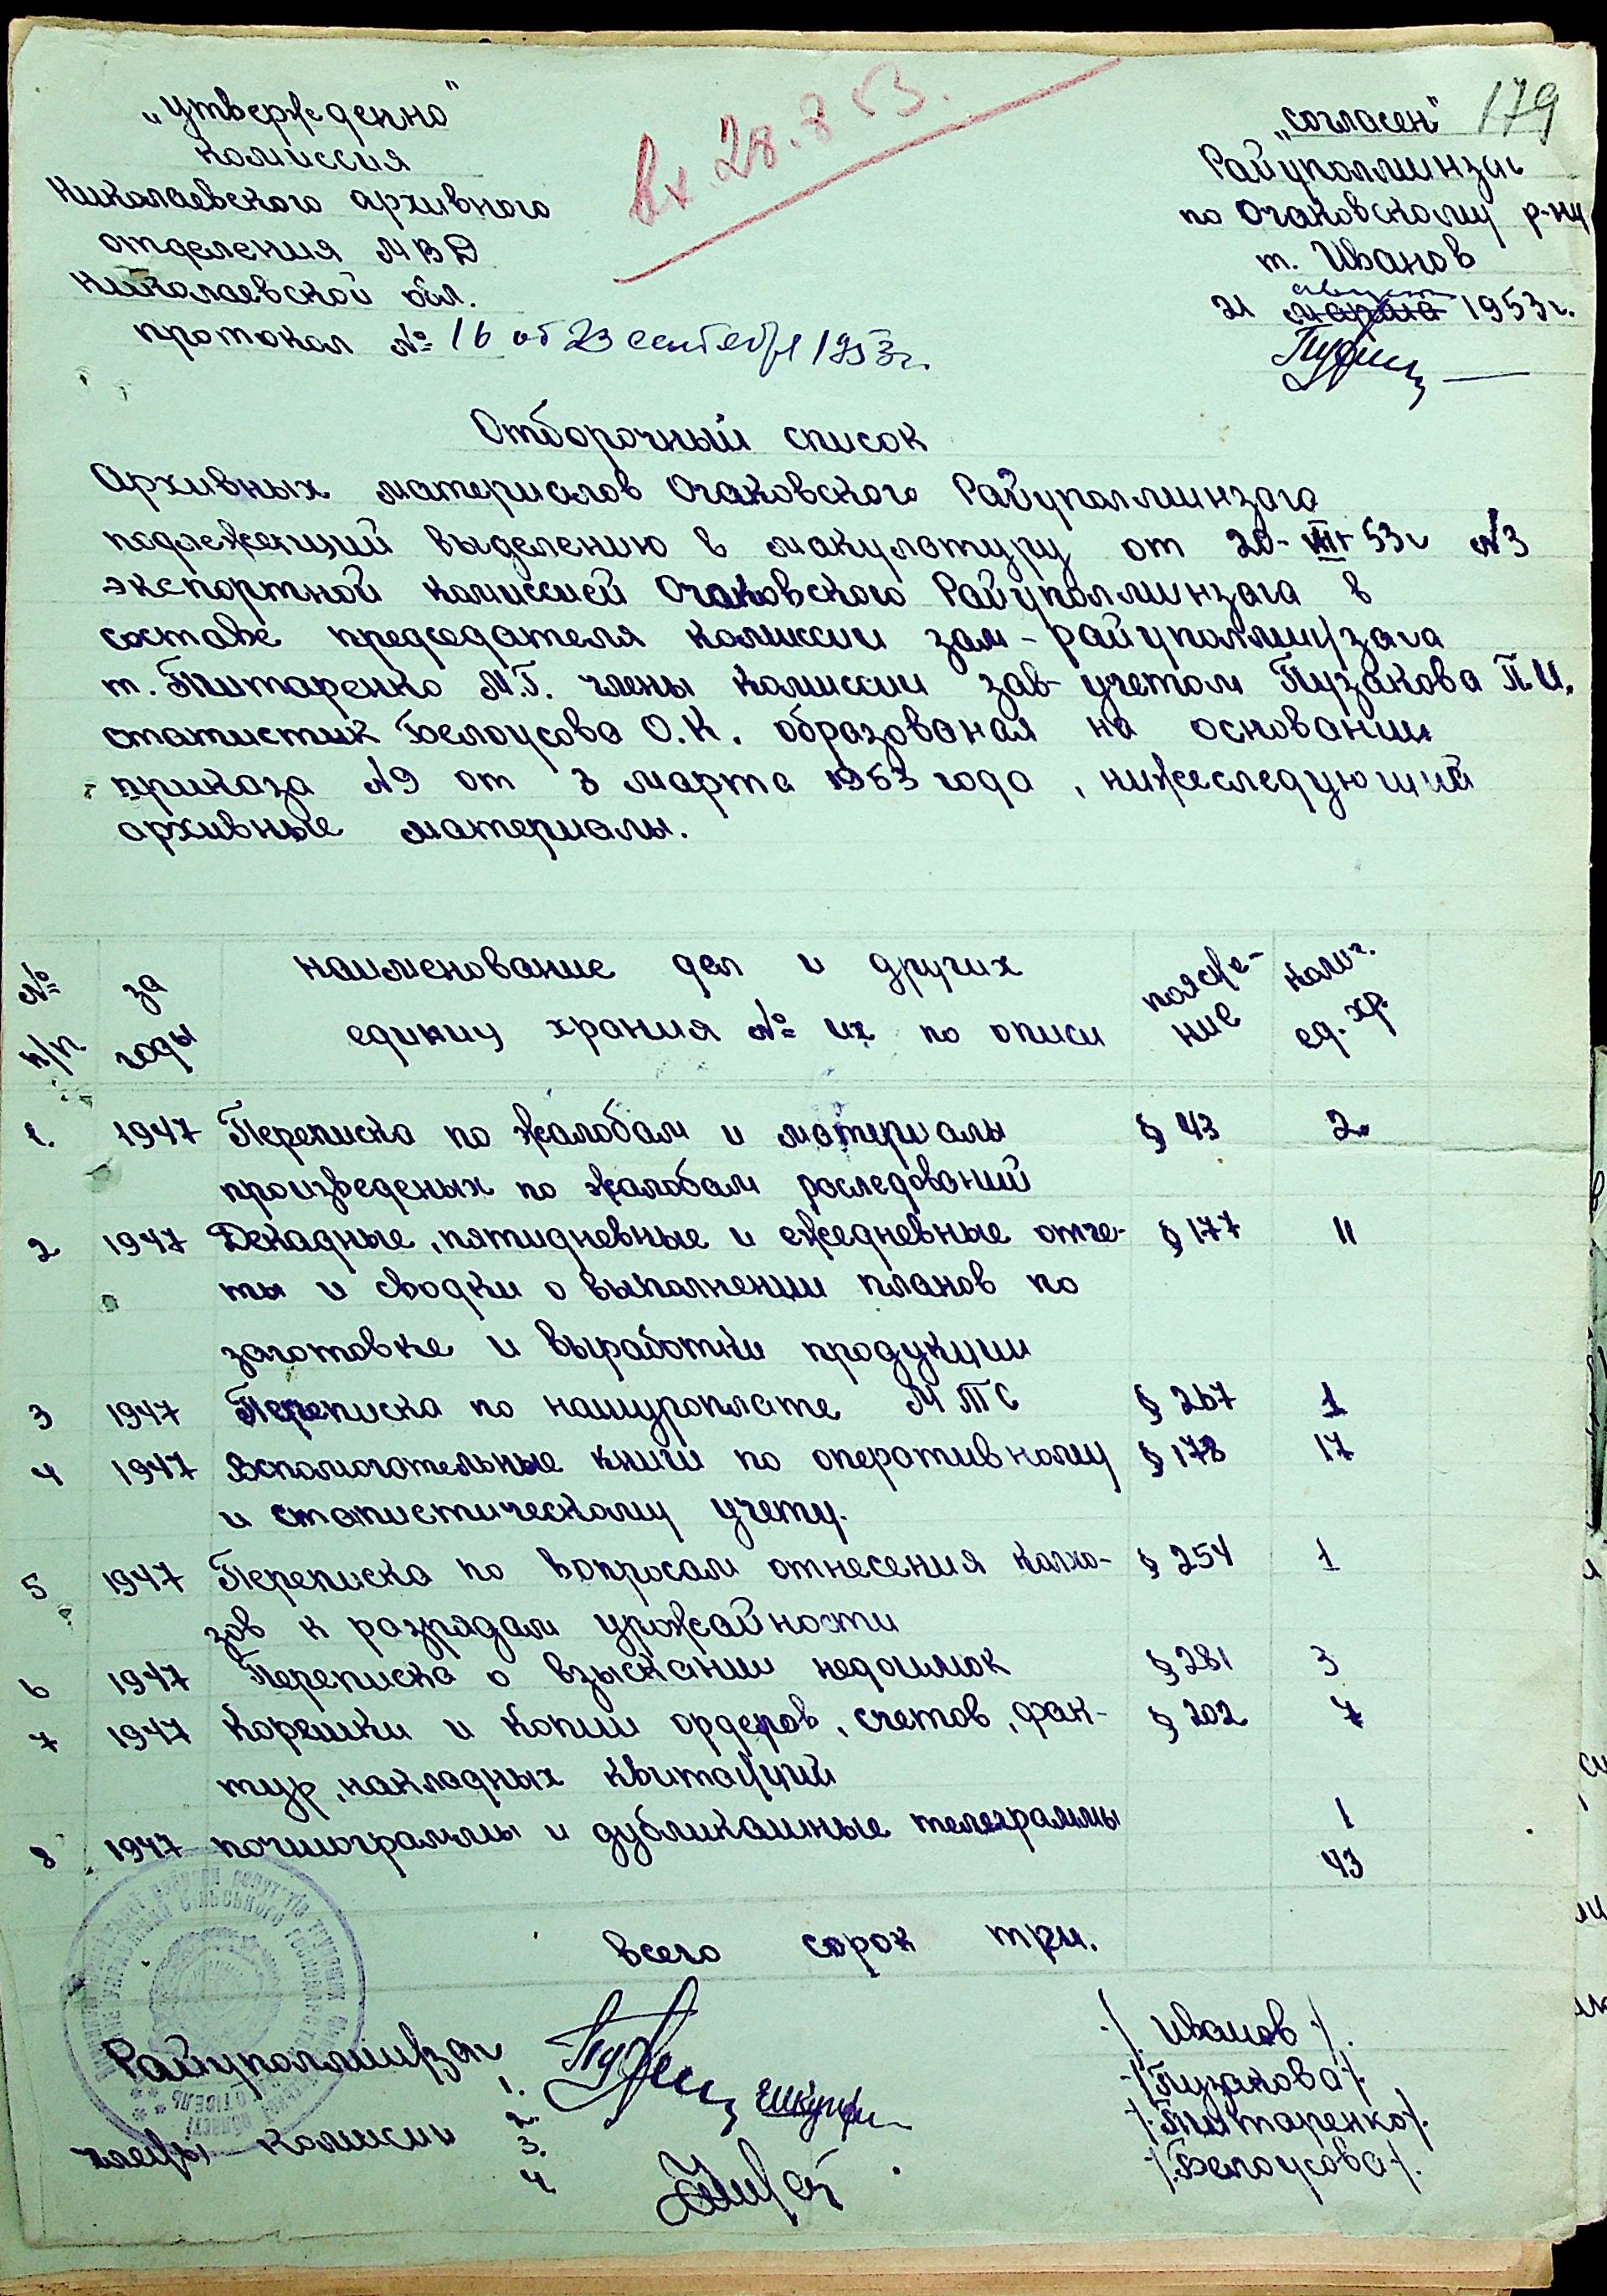 „утвержденно"
комиссия
Николаевского архивного
отделения МВД
Николаевской обл.
протокол № 16 от 23 сентября 1953г.
Вх. 28.8 53.
179
„согласен"
Райуполминзаг
по Очаковскому р-ну
т. Иванов
август
21 марта 1953г.
Отборочный список
Архивных материалов Очаковского Райуполминзага
подлежащий выделению в макулатуру от 20-VIII-53г №3
экспортной комиссией Очаковского Райуполминзага в
составе председателя комиссии зам-райуполминзага
т. Титаренко М.Г. члены комиссии зав-учетом Пузакова П.И.
статистик Белоусова О.К. образованая на основании
приказа №9 от 3 марта 1953 года, нижеследующий
архивные материалы.
№ п/п
за годы
наименование дел и других
единиц храния № их по описи
поясне-
ние
колич.
ед. хр.
1. 1947 Переписка по жалобам и материалы § 43 2
произведеных по жалобам раследований
2 1947 Декадные, пятидневные и ежедневные отче- § 177 11
ты и сводки о выполнении планов по
заготовке и выработки продукции
3 1947 Переписка по натуроплате МТС § 267 1
4 1947 Вспомогательные книги по оперативному § 178 17
и статистическому учету.
5 1947 Переписка по вопросам отнесения колхо- § 254 1
зов к разрядам урожайности
6 1947 Переписка о взыскании недоимок § 281 3
7 1947 Корешки и копии ордеров, счетов, фак- § 202 7
тур, накладных квитанций
8 1947 почтограммы и дубликатные телеграммы 1
43
всего сорок три.
Райуполминзаг /Иванов/.
члены комиссии
1. /Пузакова/.
2. /Титаренко/.
3. /Белоусова/.
4.